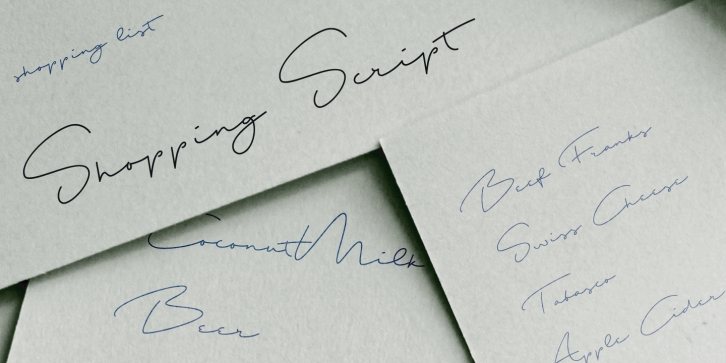 shopping list
Shopping Script
Coconut Milk
Beer
Beef Franks
Swiss Cheese
Tabasco
Apple Cider